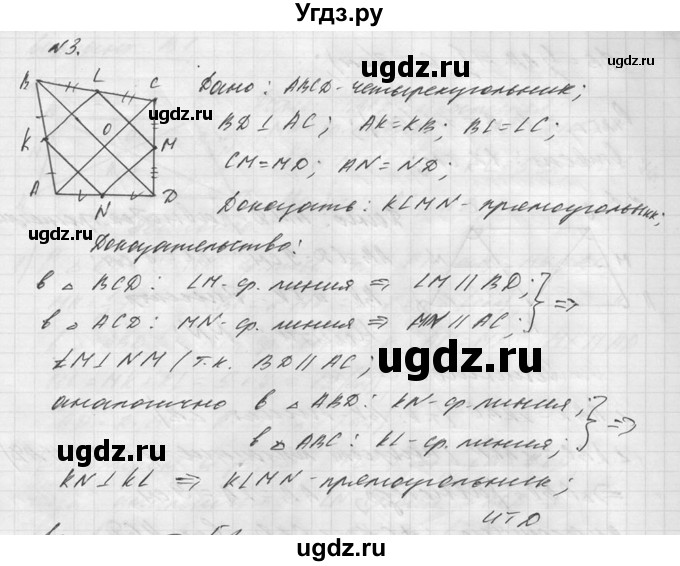 Угдз.ру
N3.
B L C
Дано: ABCD - четырехугольник;
O
BD ⊥ AC; AK=KB; BL=LC;
K M
CM=MD; AN=ND;
A N D
Доказать: KLMN - прямоугольник;
ugdz.ru
Доказательство:
в △ BCD: LM - ср. линия ⇒ LM || BD; } ⇒
в △ ACD: MN - ср. линия ⇒ MN || AC;
ugdz.ru
LM ⊥ NM / т.к. BD || AC;
аналогично в △ ABD: KN - ср. линия; } ⇒
ugdz.ru ugdz.ru
в △ ABC: KL - ср. линия;
KN ⊥ KL ⇒ KLMN - прямоугольник;
ugdz.ru
чтд
ugdz.ru